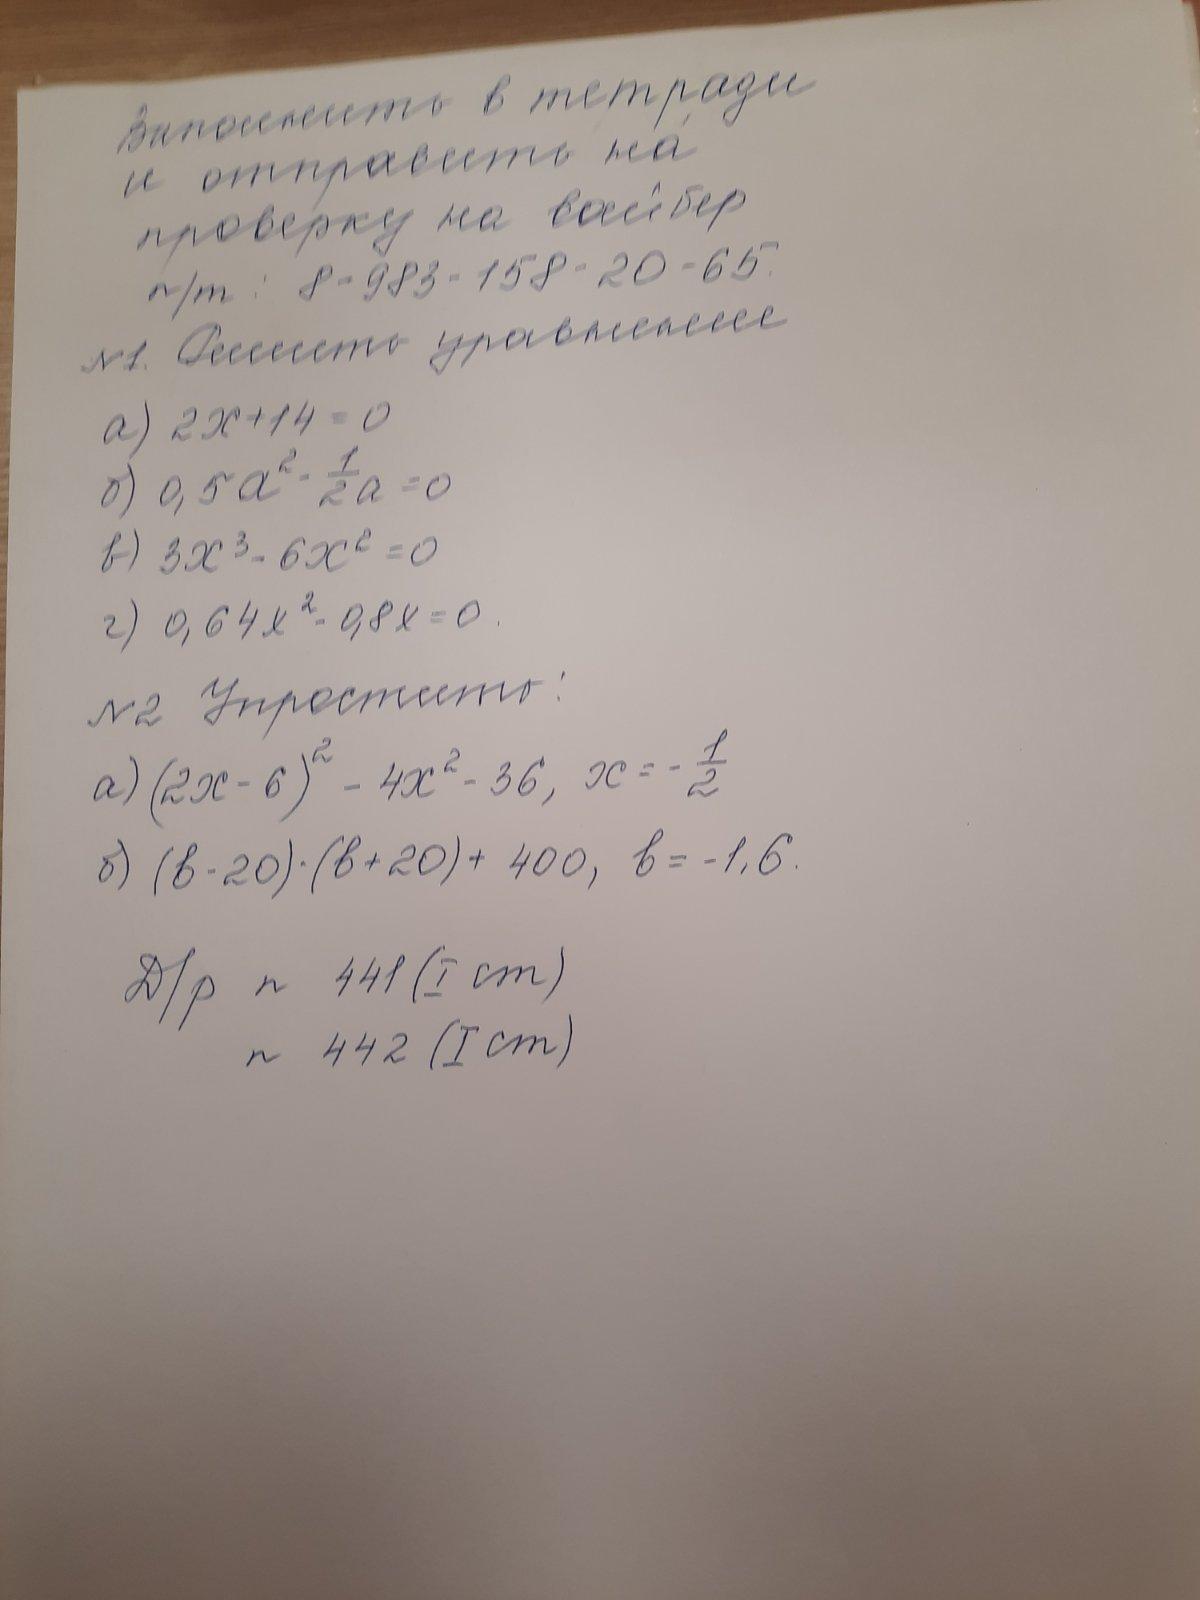 Выполнить в тетради
и отправить на
проверку на вайбер
n/т: 8-983-158-20-65.
N1. Решить уравнение
а) 2x+14=0
б) 0,5a² - 1/2 a = 0
в) 3x³ - 6x² = 0
г) 0,64x² - 0,8x = 0.
N2 Упростить:
а) (2x-6)² - 4x² - 36, x = - 1/2
б) (в-20)·(в+20)+ 400, в = -1,6.
Д/р n 441 (I ст)
n 442 (I ст)